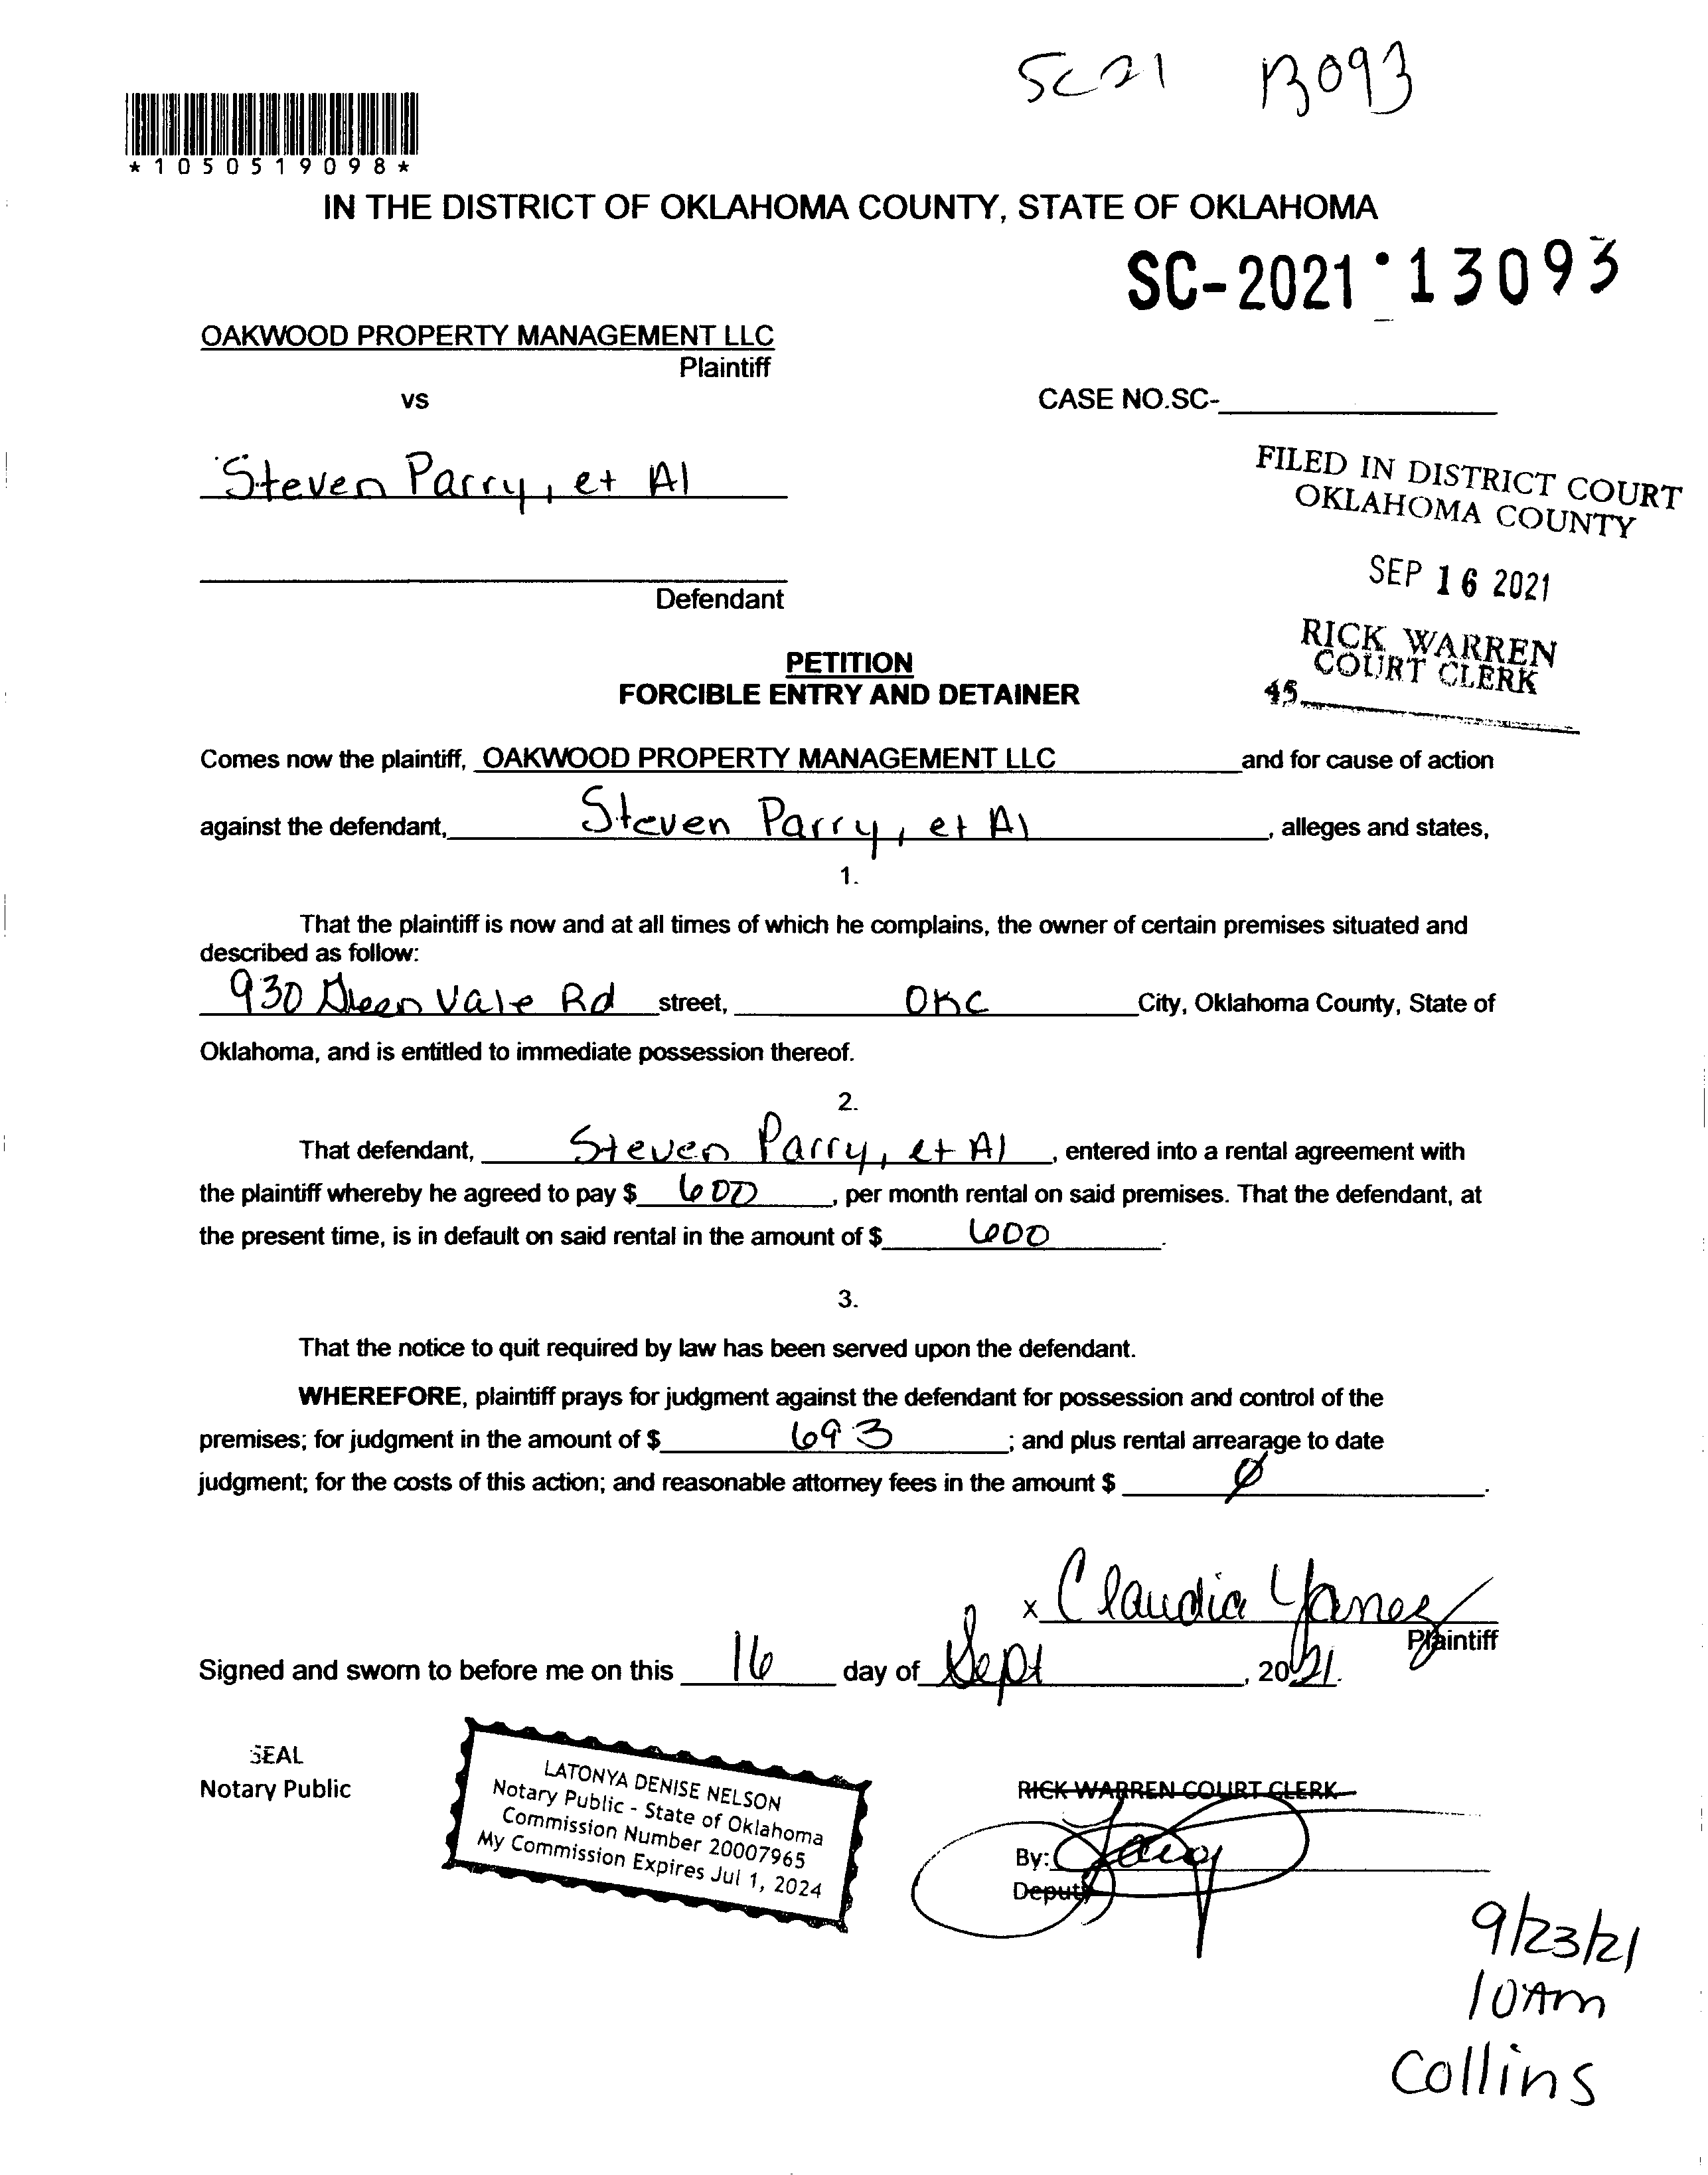 SC21 13093
*1050519098*
IN THE DISTRICT OF OKLAHOMA COUNTY, STATE OF OKLAHOMA
SC-2021 13093
OAKWOOD PROPERTY MANAGEMENT LLC
Plaintiff
vs
CASE NO.SC-
Steven Parry, et Al
FILED IN DISTRICT COURT
OKLAHOMA COUNTY
SEP 16 2021
Defendant
RICK WARREN
COURT CLERK
45
PETITION
FORCIBLE ENTRY AND DETAINER
Comes now the plaintiff, OAKWOOD PROPERTY MANAGEMENT LLC and for cause of action
against the defendant, Steven Parry, et Al, alleges and states,
1.
That the plaintiff is now and at all times of which he complains, the owner of certain premises situated and
described as follow:
930 Greenvale Rd street, OKC City, Oklahoma County, State of
Oklahoma, and is entitled to immediate possession thereof.
2.
That defendant, Steven Parry, et Al, entered into a rental agreement with
the plaintiff whereby he agreed to pay $ 600, per month rental on said premises. That the defendant, at
the present time, is in default on said rental in the amount of $ 600.
3.
That the notice to quit required by law has been served upon the defendant.
WHEREFORE, plaintiff prays for judgment against the defendant for possession and control of the
premises; for judgment in the amount of $ 693; and plus rental arrearage to date
judgment; for the costs of this action; and reasonable attorney fees in the amount $ Ø.
x Claudia Yanez
Plaintiff
Signed and sworn to before me on this 16 day of Sept, 2021.
SEAL
Notary Public
LATONYA DENISE NELSON
Notary Public - State of Oklahoma
Commission Number 20007965
My Commission Expires Jul 1, 2024
RICK WARREN COURT CLERK
By:
Deputy
9/23/21
10Am
Collins